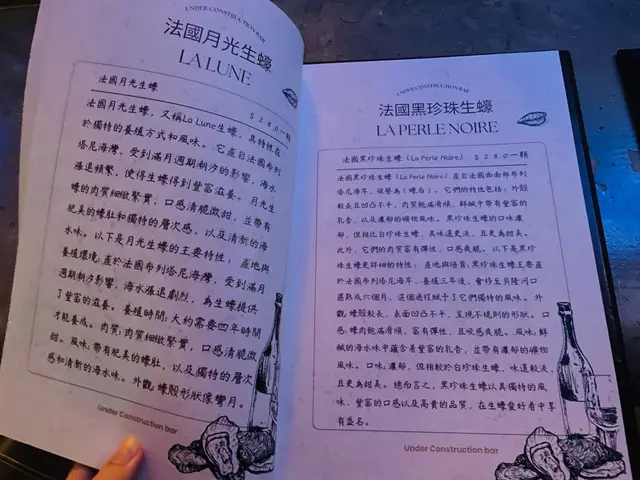 UNDER CONSTRUCTION BAR
法國月光生蠔
LA LUNE
法國月光生蠔
$28.0一顆
法國月光生蠔，又稱La Lune生蠔，其特性在
於獨特的養殖方式和風味。它產自法國布列
塔尼海灣，受到滿月週期潮汐的影響，海水
漲退頻繁，使得生蠔得到豐富滋養。月光生
蠔的肉質細緻緊實，口感清脆微甜，並帶有
肥美的蠔肚和獨特的層次感，以及清新的海
水味。以下是月光生蠔的主要特性： 產地與
養殖環境:產於法國布列塔尼海灣，受到滿月
週期潮汐影響，海水漲退劇烈，為生蠔提供
了豐富的滋養。養殖時間:大約需要四年時間
才能養成。肉質:肉質細緻緊實，口感清脆微
甜。風味:帶有肥美的蠔肚，以及獨特的層次
感和清新的海水味。外觀:蠔殼形狀像彎月。
Under Construction bar
UNDER CONSTRUCTION BAR
法國黑珍珠生蠔
LA PERLE NOIRE
法國黑珍珠生蠔（La Perle Noire） $28.0一顆
法國黑珍珠生蠔（La Perle Noire）產自法國西南部布列
塔尼海岸，被譽為「蠔后」。它們的特性包括：外殼
較長且凹凸不平，肉質飽滿滑順，鮮鹹中帶有豐富的
乳香，以及濃郁的礦物風味。 黑珍珠生蠔的口味濃
郁，但相比白珍珠生蠔，其味道更淡，且更為甜美。
此外，它們的肉質富有彈性，口感爽脆。 以下是黑珍
珠生蠔更詳細的特性： 產地與培育:黑珍珠生蠔主要產
於法國布列塔尼海岸，養殖三年後，會移至貝隆河口
濃熟成六個月，這個過程賦予了它們獨特的風味。 外
觀:蠔殼較長，表面凹凸不平，呈現不規則的形狀。 口
感:蠔肉飽滿滑順，富有彈性，且咬感爽脆。 風味:鮮
鹹的海水味中蘊含著豐富的乳香，並帶有濃郁的礦物
風味。 口味:濃郁，但相較於白珍珠生蠔，味道較淡，
且更為甜美。 總而言之，黑珍珠生蠔以其獨特的風
味、豐富的口感以及高貴的品質，在生蠔愛好者中享
有盛名。
Under Construction bar